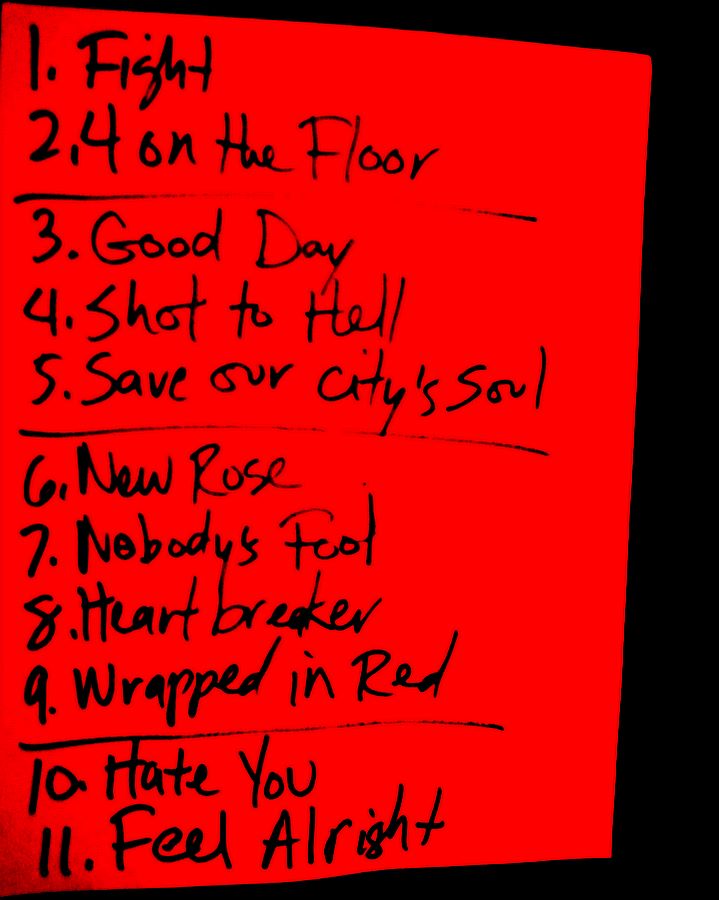 1. Fight
2, 4 on the Floor
3. Good Day
4. Shot to Hell
5. Save our city's Soul
6, New Rose
7. Nobody's Fool
8. Heartbreaker
9. Wrapped in Red
10. Hate You
11. Feel Alright